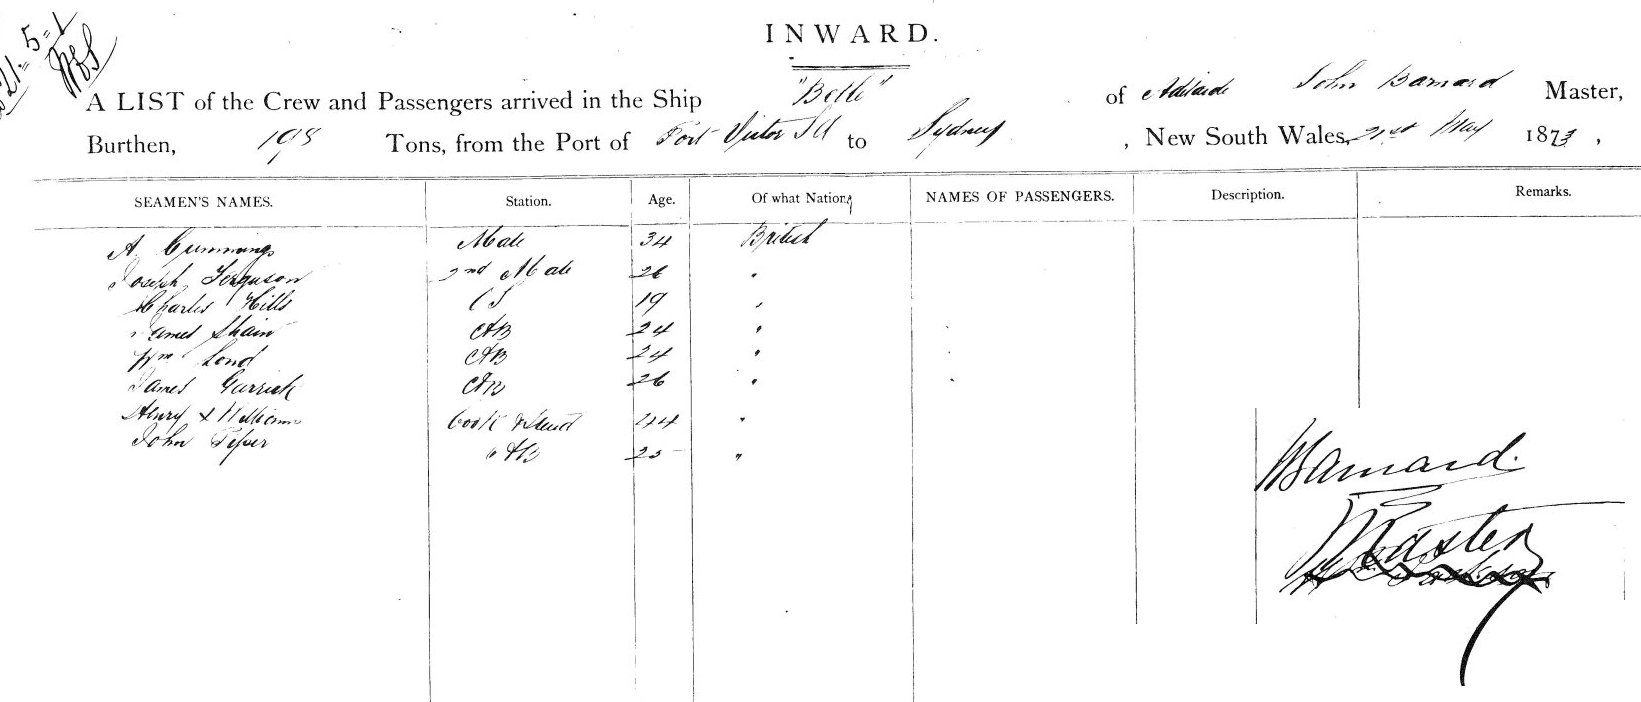 21 = 5 = 1
INWARD.
A LIST of the Crew and Passengers arrived in the Ship "Belle" of Adelaide John Barnard Master,
Burthen, 198 Tons, from the Port of Port Victor SA to Sydney, New South Wales, 21st May 1873,
SEAMEN'S NAMES. Station. Age. Of what Nation. NAMES OF PASSENGERS. Description. Remarks.
A. Cummings Mate 34 British
Joseph Ferguson 2nd Mate 26 "
Charles Hills OS 19 "
James Shain AB 24 "
Wm Lond AB 24 "
James Garrick AB 26 "
Henry Williams Cook & Steud 44 "
John Piper AB 25 "
Barnard.
Master